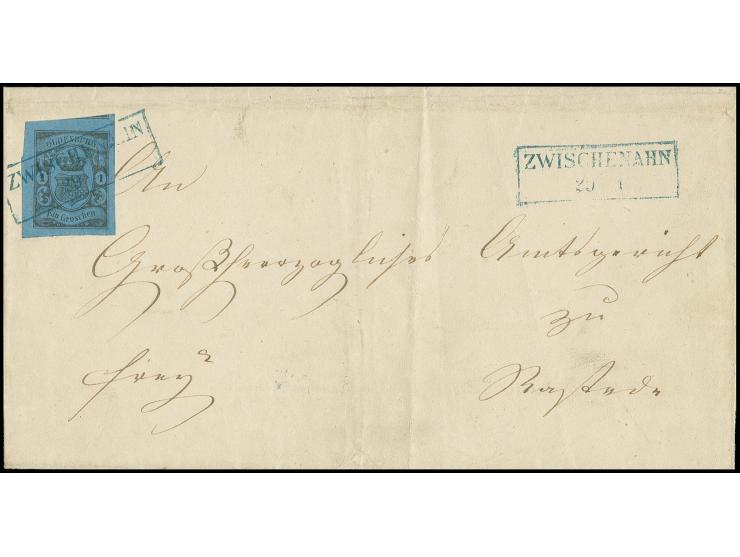 OLDENBURG
1 1
Ein Groschen
ZWISCHENAHN
An
Großherzogliches Amtsgericht
zu
frey
Rastede